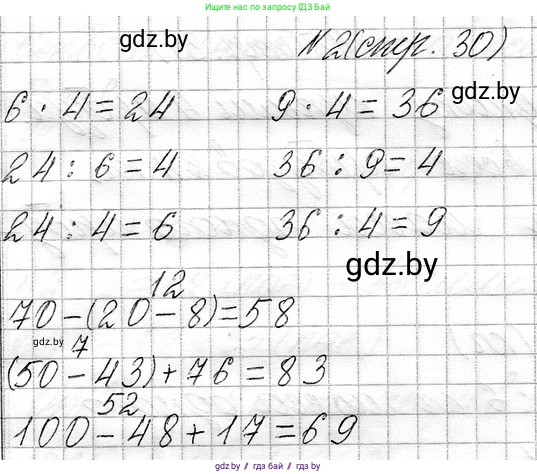 Ищите нас по запросу ГДЗ Бай
gdz.by
№2(стр. 30)
gdz.by
6 · 4 = 24 9 · 4 = 36
24 : 6 = 4 36 : 9 = 4
24 : 4 = 6 36 : 4 = 9
gdz.by
12
70 - (20 - 8) = 58
gdz.by
7
(50 - 43) + 76 = 83
52
100 - 48 + 17 = 69
gdz.by / гдз бай / gdz.by / гдз бай / gdz.by